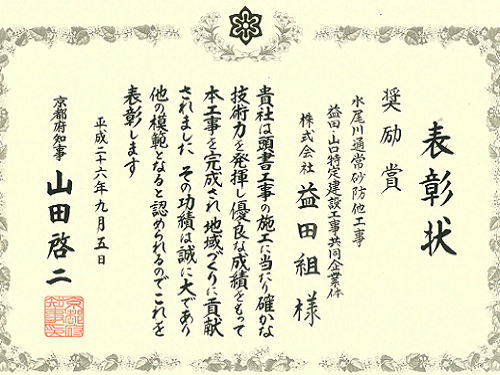 表彰状
奨励賞
水尾川通常砂防他工事
益田・山口特定建設工事共同企業体
株式会社 益田組 様
貴社は頭書工事の施工に当たり確かな
技術力を発揮し優良な成績をもって
本工事を完成され地域づくりに貢献
されました その功績は誠に大であり
他の模範となると認められるのでこれを
表彰します
平成二十六年九月五日
京都府知事 山田啓二